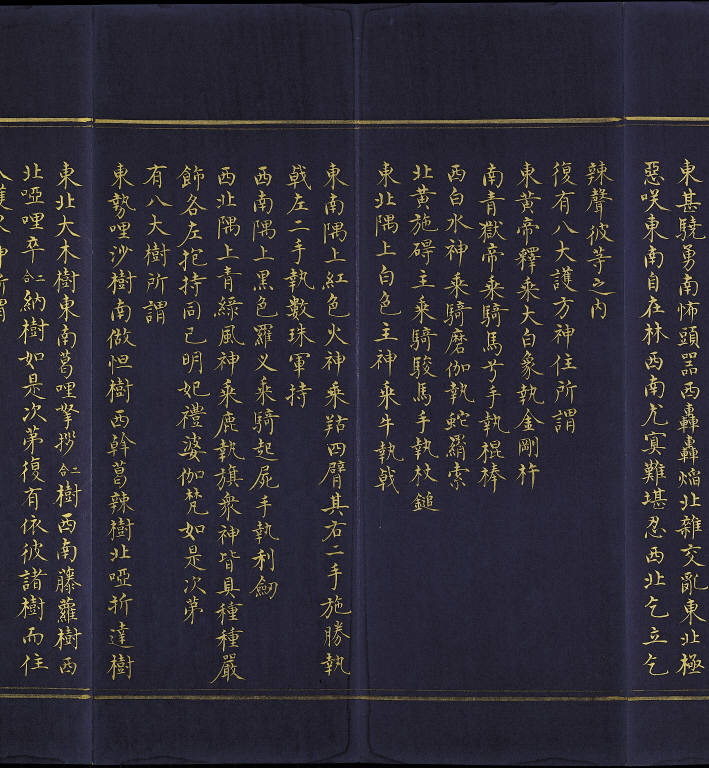 東甚驍勇南怖頭嚣西轟轟焰北雜交亂東北極
惡咲東南自在林西南尤寞難堪忍西北乞立乞
辣聲彼等之内
復有八大護方神住所謂
東黄帝釋乘大白象執金剛杵
南青獄帝乘騎馬手執棍棒
西白水神乘騎磨伽執蛇羂索
北黄施碍主乘騎駿馬手執杖鎚
東北隅上白色主神乘牛執戟
東南隅上紅色火神乘羖四臂其右二手施勝執
戟左二手執數珠軍持
西南隅上黒色羅义乘騎起屍手執利劒
西北隅上青緑風神乘鹿執旗衆神皆具種種嚴
飾各左抱持同己明妃禮婆伽梵如是次第
有八大樹所謂
東勢哩沙樹南做怛樹西幹葛辣樹北啞折達樹
東北大木樹東南葛哩拶二合樹西南藤蘿樹西
北啞哩卒二合納樹如是次第復有依彼諸樹而住